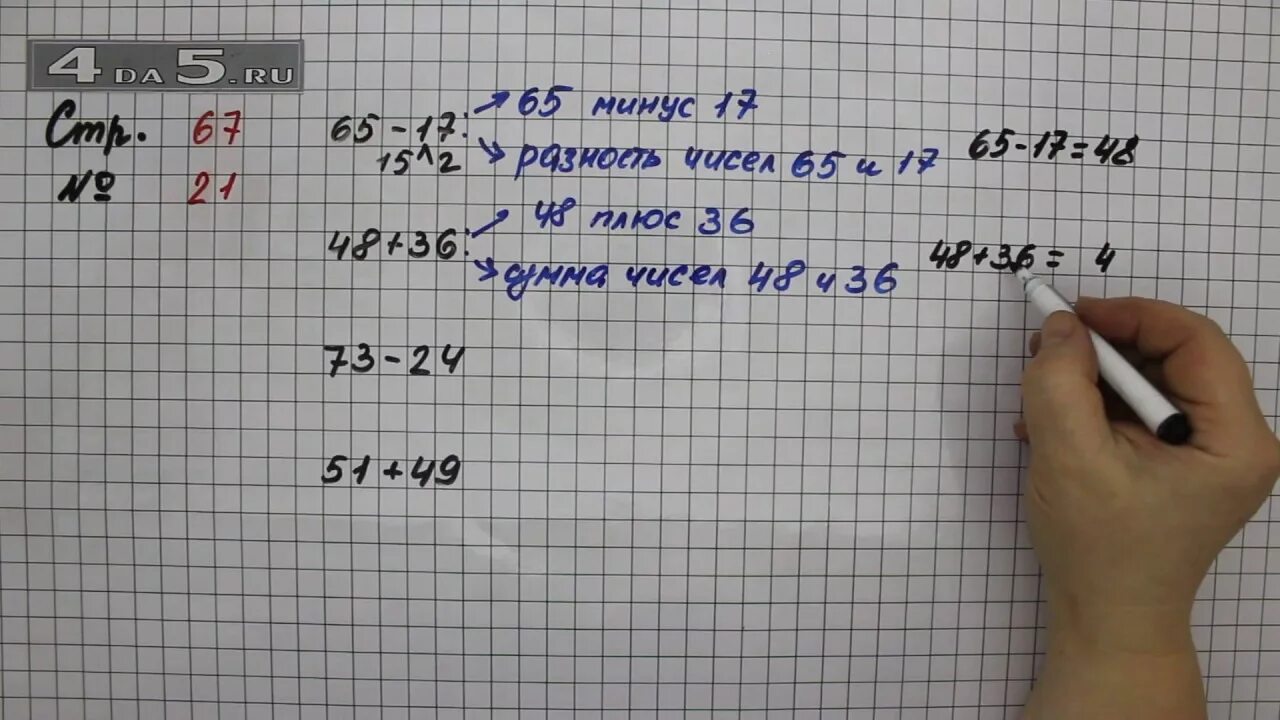 4DA5.RU
Стр. 67
№ 21
65-17:
15^2
65 минус 17
разность чисел 65 и 17
65-17=48
48+36:
48 плюс 36
сумма чисел 48 и 36
48+36= 4
73-24
51+49